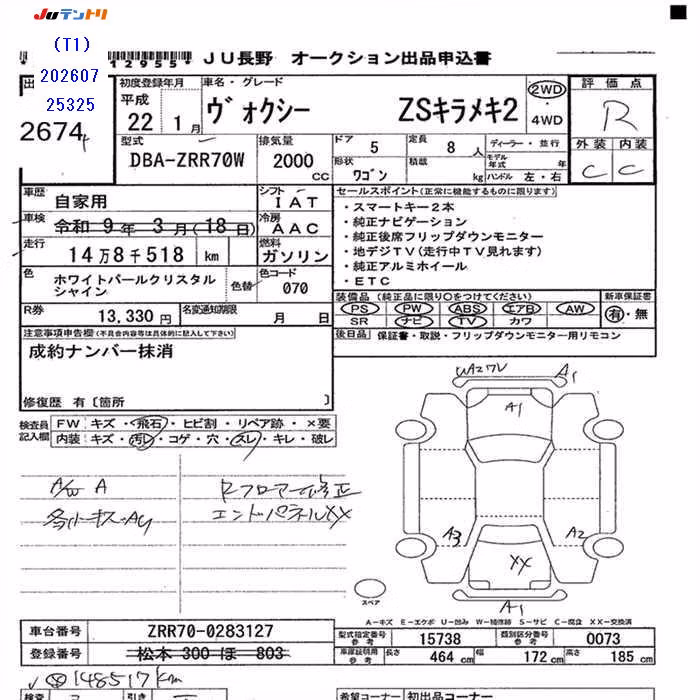 JUテントリ
(T1)
202607
25325
*12955* JU長野 オークション出品申込書
2674
初度登録年月
平成
22 1月
車名・グレード
ヴォクシー ZSキラメキ2
2WD
4WD
評価点
R
外装 内装
C C
型式
DBA-ZRR70W
排気量
2000 CC
ドア 5
定員 8人
ディーラー・並行
形状 ワゴン
積載 kg
モデル年式 年
ハンドル 左・右
車歴 自家用
シフト IAT
車検 令和 9年 3月(18日)
冷房 AAC
走行 14万8千518 km
燃料 ガソリン
色 ホワイトパールクリスタル
シャイン
色替
色コード 070
R券 13,330円
名変通知期限 月 日
セールスポイント(正常に機能するものに限ります)
・スマートキー2本
・純正ナビゲーション
・純正後席フリップダウンモニター
・地デジTV(走行中TV見れます)
・純正アルミホイール
・ETC
装備品(純正品に限り○をつけてください)
PS PW ABS エアB AW
SR ナビ TV カワ
新車保証書
有・無
後日品 保証書・取説・フリップダウンモニター用リモコン
注意事項申告欄(不具合内容等は具体的に記入して下さい)
成約ナンバー抹消
修復歴 有〔箇所 〕
検査員記入欄
FW キズ・飛石・ヒビ割・リペア跡・×要
内装 キズ・汚レ・コゲ・穴・スレ・キレ・破レ
A/W A
Rフロアー修正
エンドパネルXX
A1
A1
A3
A2
XX
A1
スペア
A−キズ E−エクボ U−凹み W−補修跡 S−サビ C−腐食 XX−交換済
車台番号 ZRR70-0283127
登録番号 松本 300 ほ 803
型式指定番号参考 15738
類別区分番号参考 0073
車庫証明用参考 長さ 464cm 幅 172cm 高さ 185cm
148517km
希望コーナー 初出品コーナー